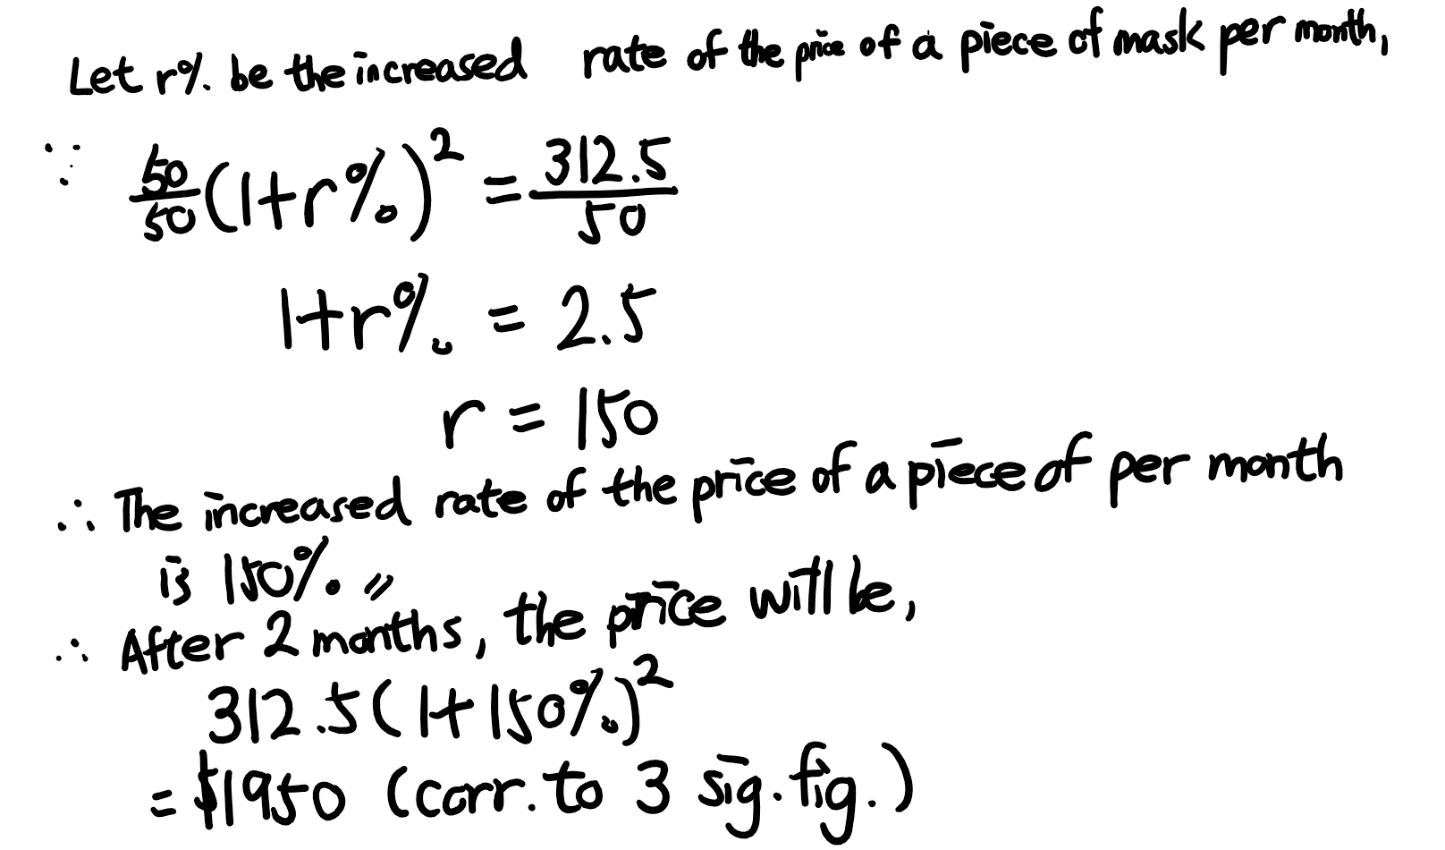 Let r% be the increased rate of the price of a piece of mask per month,
∵ 50/50 (1+r%)² = 312.5/50
1+r% = 2.5
r = 150
∴ The increased rate of the price of a piece of per month
is 150%. //
∴ After 2 months, the price will be,
312.5(1+150%)²
= $1950 (corr. to 3 sig. fig.)